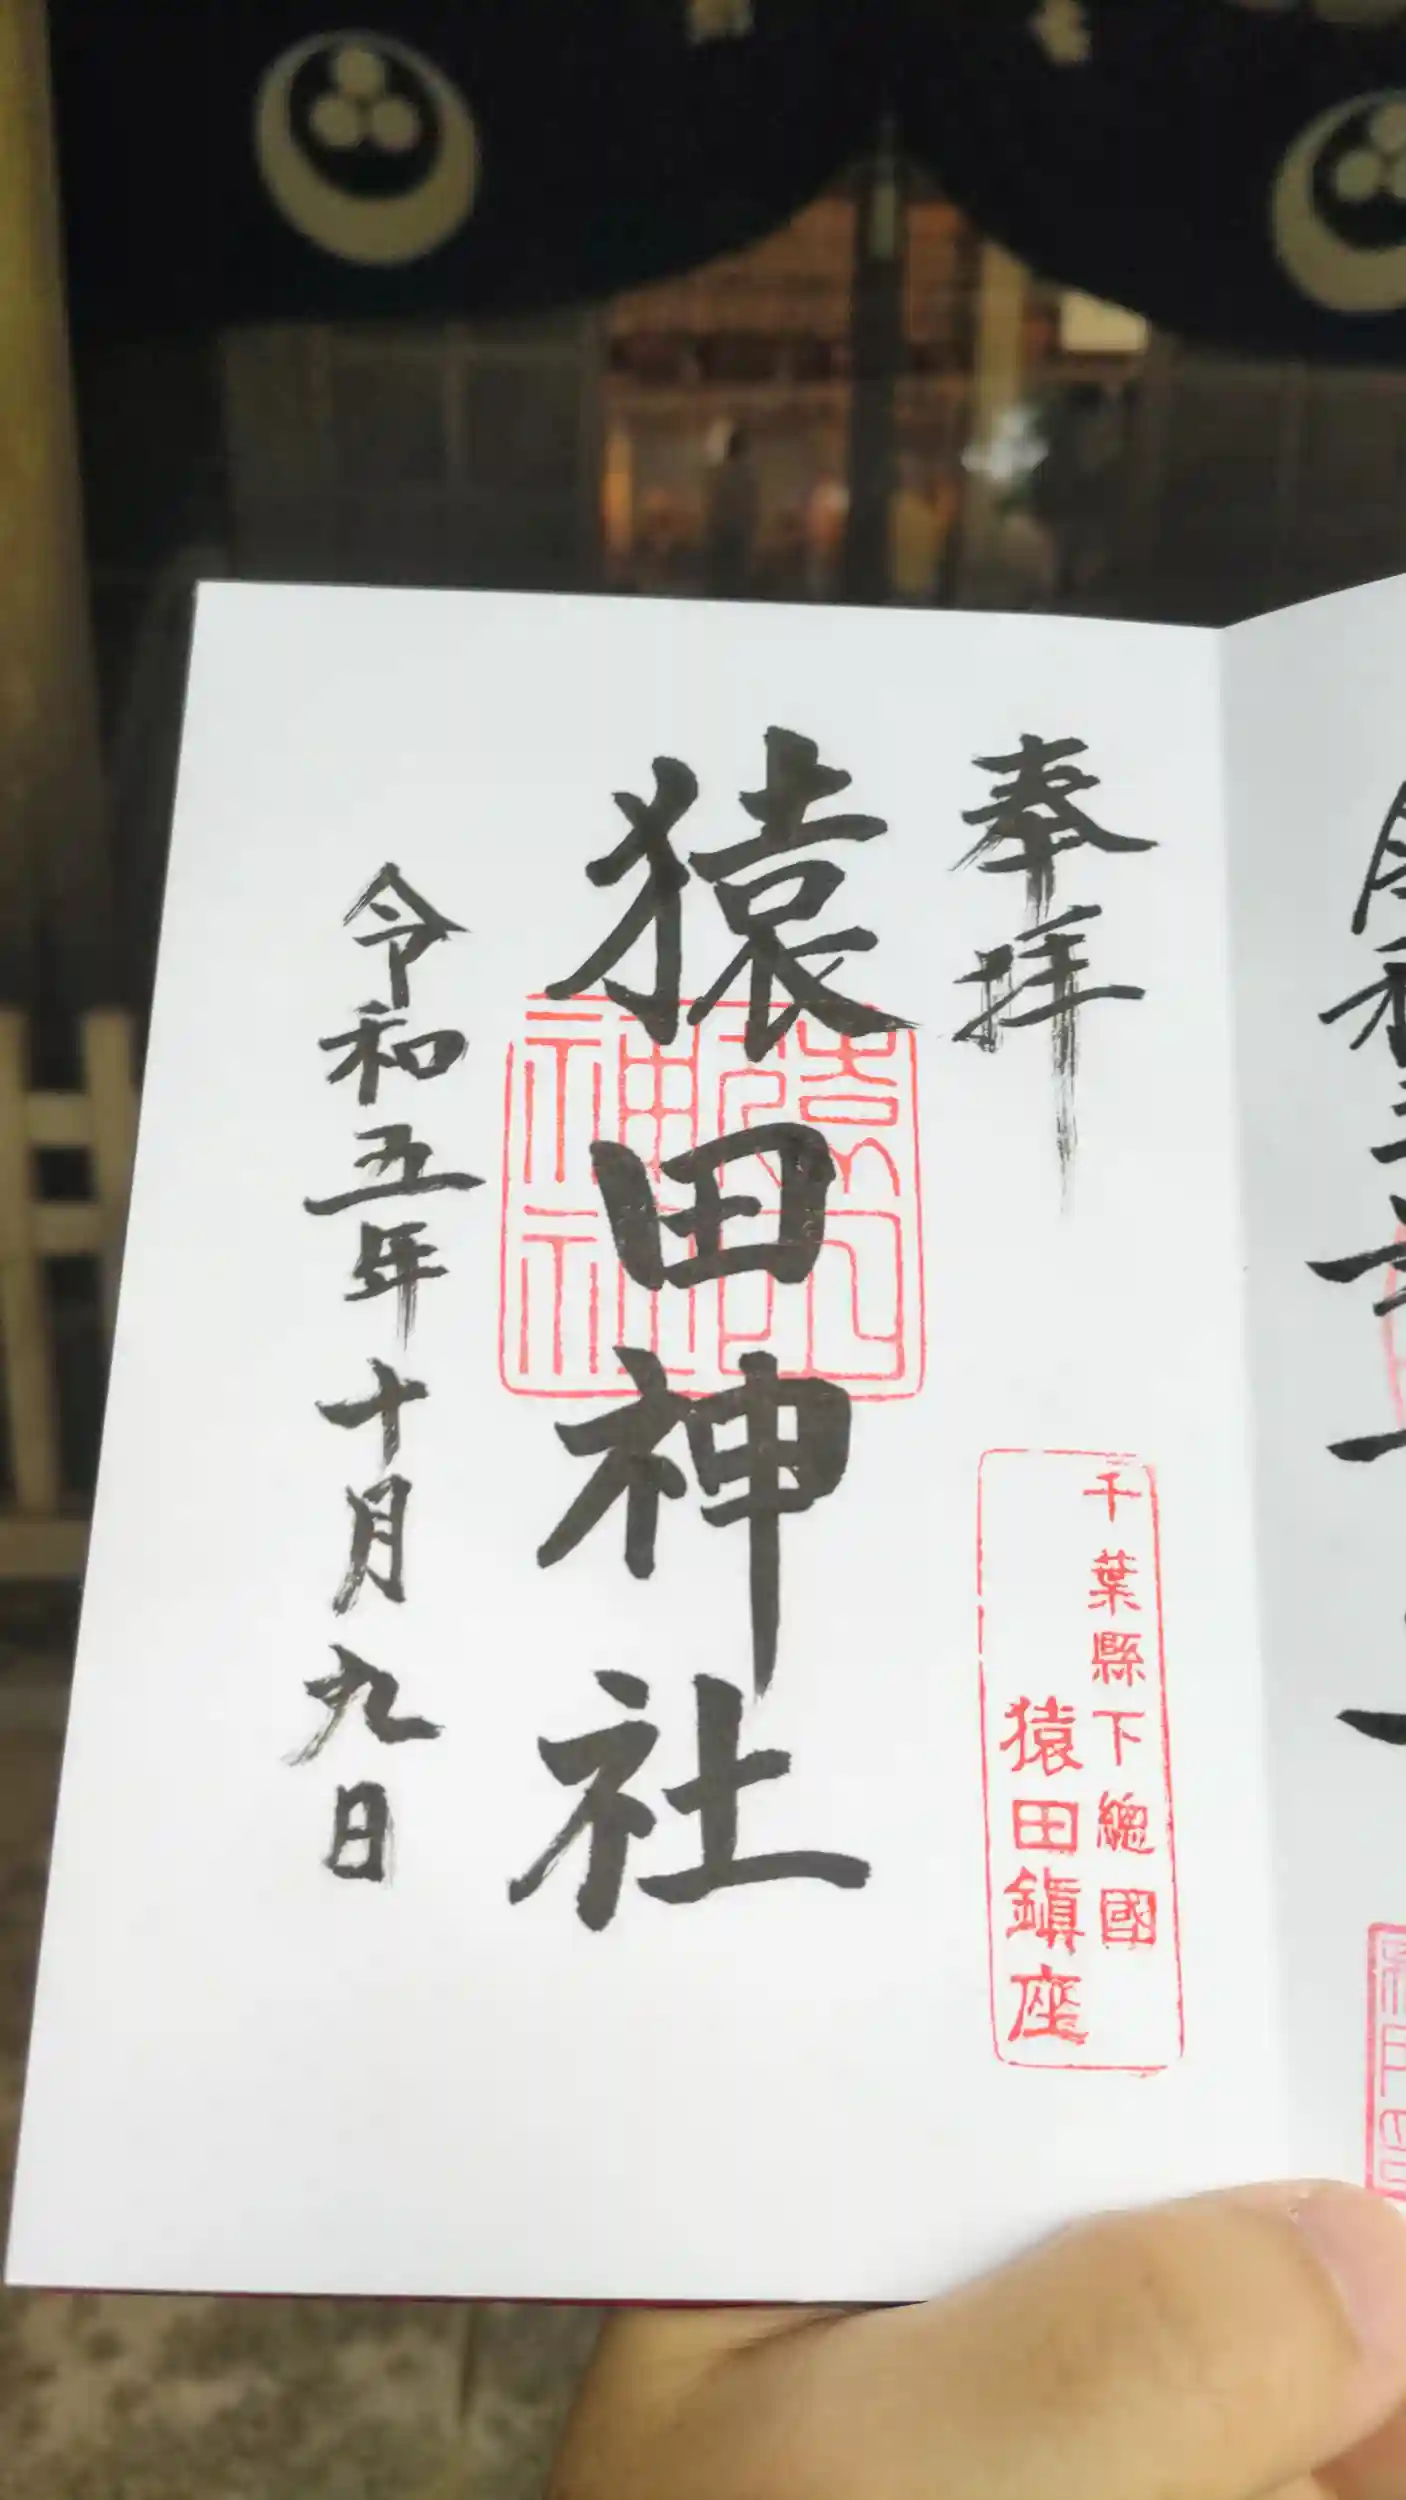 奉拝
千葉縣下總國
猿田鎭座
猿田神社
猿田
神社
令和五年十月九日